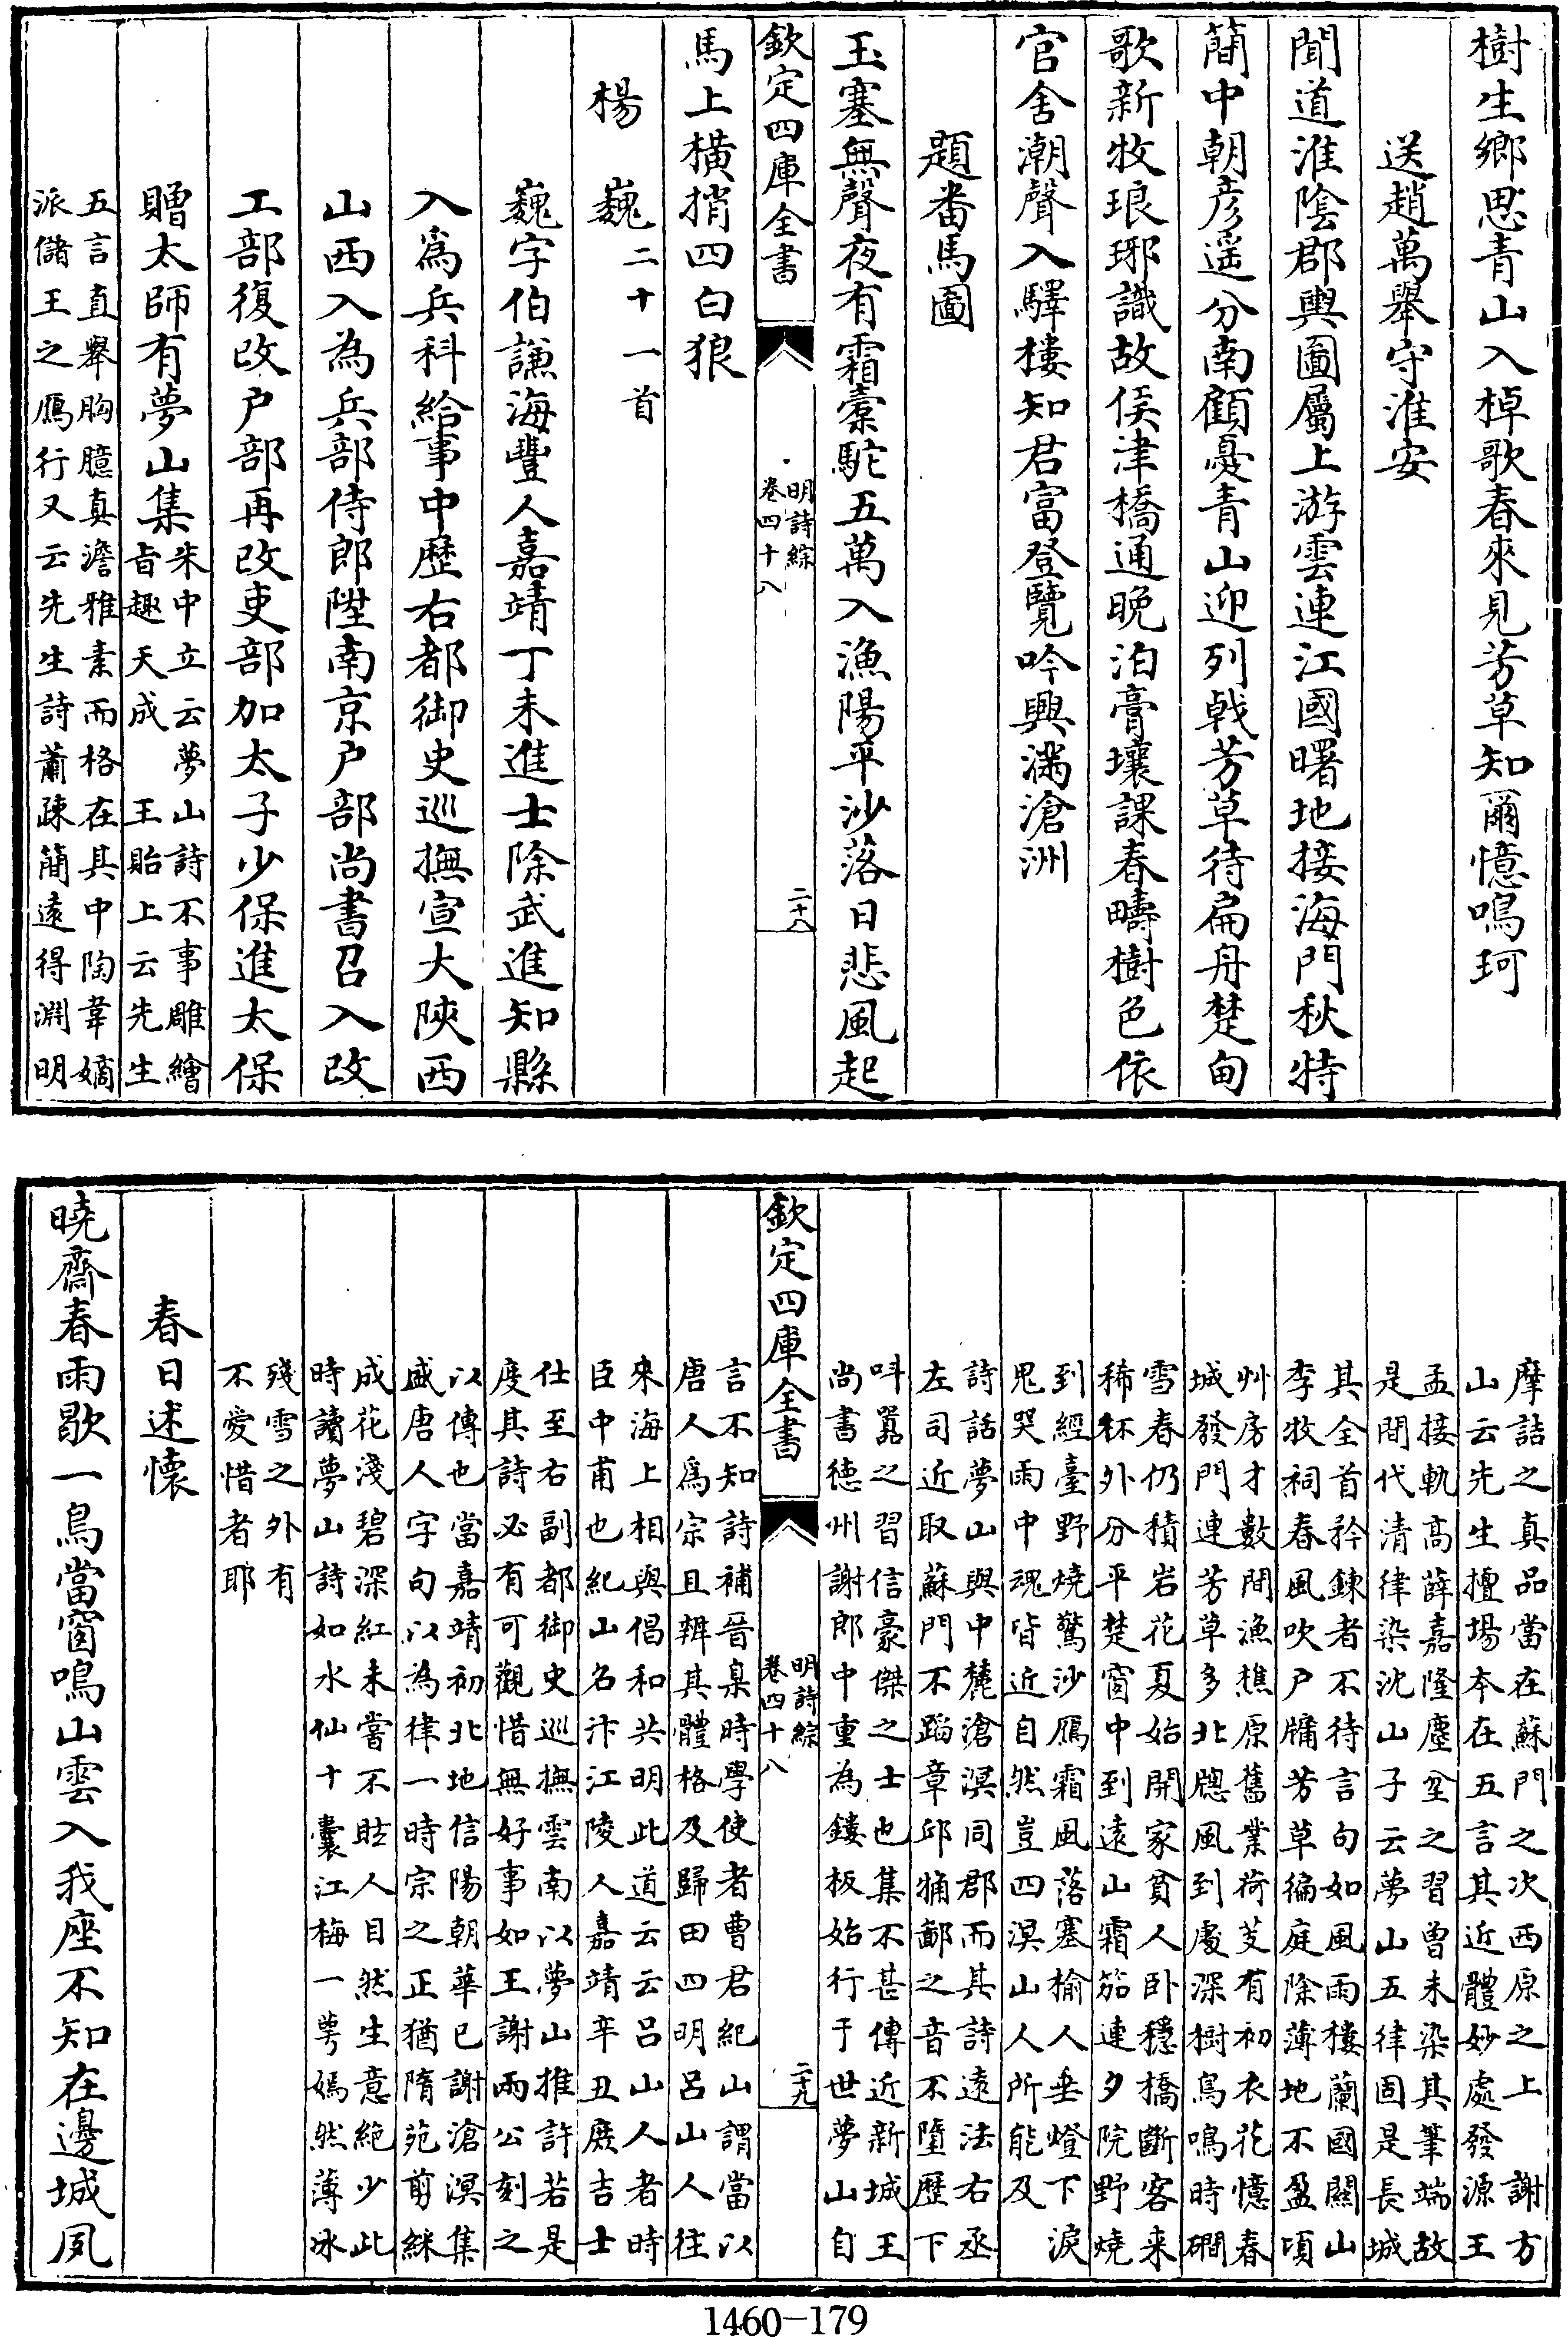 樹生鄉思青山入棹歌春來見芳草知爾憶鳴珂
送趙萬舉守淮安
聞道淮陰郡輿圖屬上游雲連江國曙地接海門秋特
簡中朝彦遥分南顧憂青山迎列戟芳草待扁舟楚甸
歌新牧琅琊識故侯津橋通晚泊膏壤課春疇樹色依
官舍潮聲入驛樓知君富登覽吟興滿滄洲
題番馬圖
玉塞無聲夜有霜橐駝五萬入漁陽平沙落日悲風起
欽定四庫全書
明詩綜
卷四十八
二十八
馬上橫捎四白狼
楊巍二十一首
巍字伯謙海豐人嘉靖丁未進士除武進知縣
入爲兵科給事中歴右都御史巡撫宣大陜西
山西入為兵部侍郎陞南京户部尚書召入改
工部復改户部再改吏部加太子少保進太保
贈太師有夢山集
朱中立云夢山詩不事雕繪
旨趣天成 王貽上云先生
五言直舉胸臆真澹雅素而格在其中陶韋嫡
派儲王之鴈行又云先生詩蕭疎簡遠得淵明
摩詰之真品當在蘇門之次西原之上 謝方
山云先生擅場本在五言其近體妙處發源王
孟接軌高薛嘉隆塵坌之習曾未染其筆端故
是間代清律染沈山子云夢山五律固是長城
其全首矜鍊者不待言句如風雨樓蘭國關山
李牧祠春風吹户牖芳草徧庭除薄地不盈頃
艸房才數間漁樵原舊業荷芰有初衣花憶春
城發門連芳草多北牕風到處深樹鳥鳴時磵
雪春仍積岩花夏始開家貧人卧穩橋斷客来
稀杯外分平楚窗中到遠山霜笳連夕院野燒
到經臺野燒驚沙鴈霜風落塞榆人垂燈下淚
鬼哭雨中魂皆近自然豈四溟山人所能及
詩話夢山與中麓滄溟同郡而其詩遠法右丞
左司近取蘇門不蹈章邱犕鄙之音不墮歴下
叫囂之習信豪傑之士也集不甚傳近新城王
尚書德州謝郎中重為鏤板始行于世夢山自
欽定四庫全書
明詩綜
卷四十八
二十九
言不知詩補晉臬時學使者曹君紀山謂當以
唐人爲宗且辨其體格及歸田四明呂山人往
來海上相與倡和共明此道云云呂山人者時
臣中甫也紀山名汴江陵人嘉靖辛丑庶吉士
仕至右副都御史巡撫雲南以夢山推許若是
度其詩必有可觀惜無好事如王謝兩公刻之
以傳也當嘉靖初北地信陽朝華已謝滄溟集
盛唐人字句以為律一時宗之正猶隋苑剪綵
成花淺碧深紅未嘗不眩人目然生意絶少此
時讀夢山詩如水仙十囊江梅一萼嫣然薄冰
殘雪之外有
不愛惜者耶
春日述懷
曉齋春雨歇一鳥當窗鳴山雲入我座不知在邊城夙
1460-179